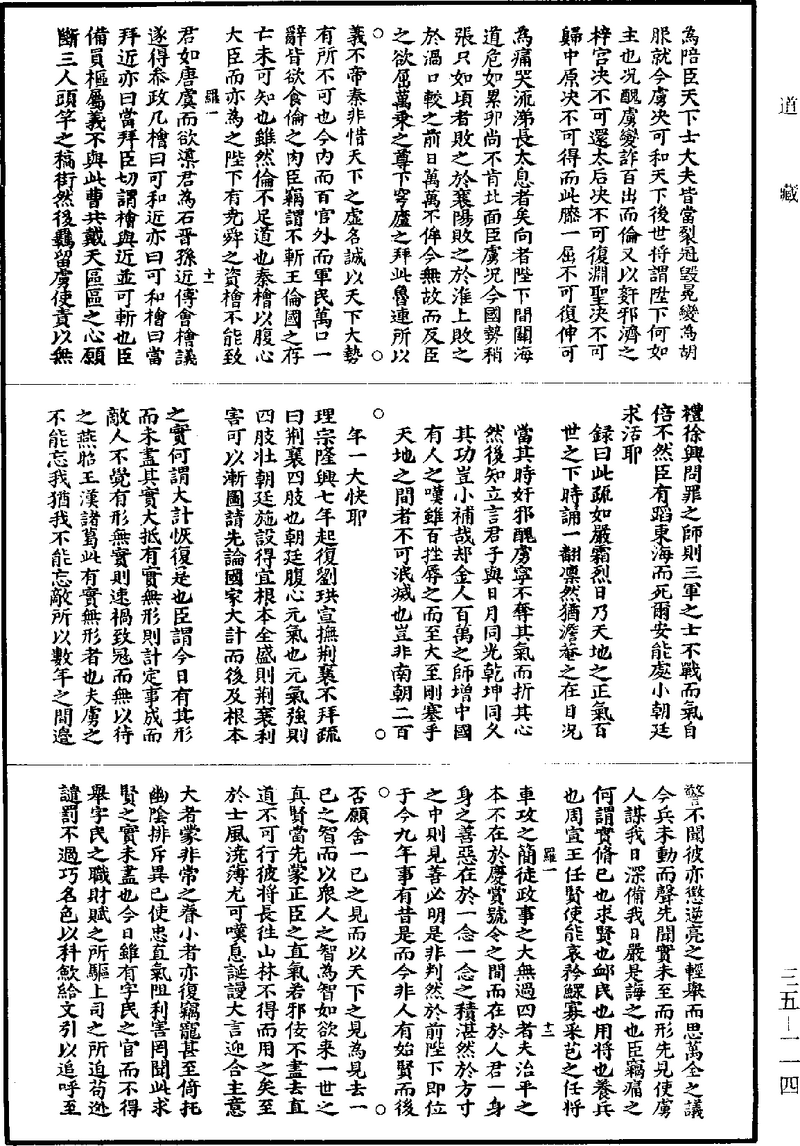 道藏
三五—一一四
為陪臣天下士大夫皆當裂冠毀冕變為胡
服就今虜決可和天下後世將謂陛下何如
主也況醜虜變詐百出而倫又以姧邪濟之
梓宮決不可還太后決不可復淵聖決不可
歸中原決不可得而此膝一屈不可復伸可
為痛哭流涕長太息者矣向者陛下間關海
道危如累卵尚不肯北面臣虜況今國勢稍
張只如頃者敗之於襄陽敗之於淮上敗之
於渦口較之前日萬萬不侔今無故而反臣
之欲屈萬乗之尊下穹廬之拜此魯連所以
義不帝秦非惜天下之虛名誠以天下大勢
有所不可也今內而百官外而軍民萬口一
辭皆欲食倫之肉臣竊謂不斬王倫國之存
亡未可知也雖然倫不足道也秦檜以腹心
大臣而亦為之陛下有尭舜之資檜不能致
羅一
十一
君如唐虞而欲導君為石晉孫近傅會檜議
遂得叅政凡檜曰可和近亦曰可和檜曰當
拜近亦曰當拜臣切謂檜與近並可斬也臣
備員樞屬義不與此曹共戴天區區之心願
斷三人頭竿之稿街然後羈留虜使責以無
禮徐興問罪之師則三軍之士不戰而氣自
倍不然臣有蹈東海而死爾安能處小朝廷
求活耶
録曰此疏如嚴霜烈日乃天地之正氣百
世之下時誦一翻凛然猶澹菴之在日況
當其時奸邪醜虜寧不奪其氣而折其心
然後知立言君子與日月同光乾坤同久
其功豈小補哉却金人百萬之師增中國
有人之嘆雖百挫辱之而至大至剛塞乎
天地之間者不可泯滅也豈非南朝二百
年一大快耶
理宗隆興七年起復劉珙宣撫荆襄不拜疏
曰荆襄四肢也朝廷腹心元氣也元氣強則
四肢壮朝廷施設得宜根本全盛則荆襄利
害可以漸圖請先論國家大計而後及根本
之實何謂大計恢復是也臣謂今日有其形
而未盡其實大抵有實無形則計定事成而
敵人不覺有形無實則速禍致冦而無以待
之燕昭王漢諸葛此有實無形者也夫虜之
不能忘我猶我不能忘敵所以數年之間邊
警不聞彼亦懲逆亮之輕舉而思萬全之議
今兵未動而聲先聞實未至而形先見使虜
人謀我日深備我日嚴是誨之也臣竊痛之
何謂實脩已也求賢也邺民也用將也養兵
也周宣王任賢使能哀矜鰥寡采芑之任將
羅一
十二
車攻之簡徒政事之大無過四者夫治平之
本不在於慶賞號令之間而在於人君一身
身之善惡在於一念一念之積湛然於方寸
之中則見善必明是非判然於前陛下即位
于今九年事有昔是而今非人有始賢而後
否願舍一已之見而以天下之見為見去一
已之智而以衆人之智為智如欲来一世之
真賢當先蒙正臣之直氣若邪佞不盡去直
道不可行彼将長徃山林不得而用之矣至
於士風澆薄尤可嘆息誕謾大言迎合主意
大者蒙非常之眷小者亦復竊寵甚至倚托
幽陰排斥異已使忠直氣阻利害罔聞此求
賢之實未盡也今日雖有字民之官而不得
舉字民之職財賦之所驅上司之所迫苟逊
譴罰不過巧名色以科歛給文引以追呼至